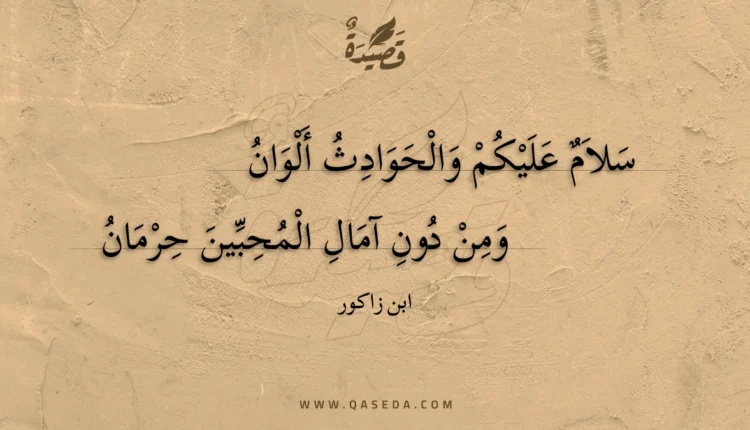 قَصِيدَةٌ
سَلاَمٌ عَلَيْكُمْ وَالْحَوَادِثُ أَلْوَانُ
وَمِنْ دُونِ آمَالِ الْمُحِبِّينَ حِرْمَانُ
ابن زاكور
WWW.QASEDA.COM